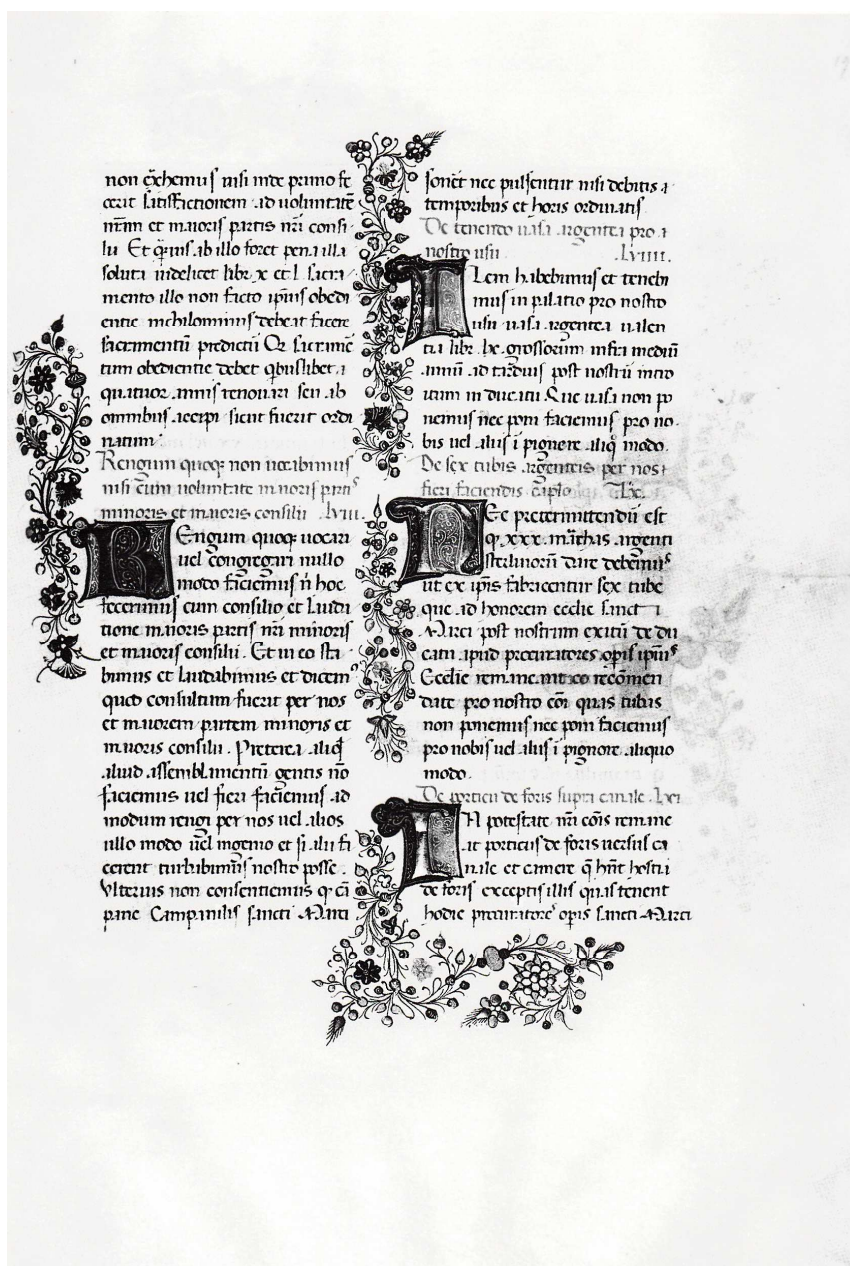 non exhemus nisi inde primo fe
cerit satisfactionem ad uoluntatē
nr̄am et maioris partis nr̄i consi
lii Et q̄uis ab illo foret pena illa
soluta uidelicet libr x et l sacra
mento illo non facto ipsius obedi
entie nichilominus debeat facere
sacramentum predictū Qd̄ sacramē
tum obedientie debet qbuslibet
quatuor annis renouari seu ab
omnibus accipi sicut fuerit ordi
natum
Rengum quoqꝫ non uocabimus
nisi cum uoluntate maioris partis
minoris et maioris consilii .lviii.
REngum quoqꝫ uocari
uel congregari nullo
modo faciemus n̄ hoc
fecerimus cum consilio et lauda
tione maioris partis nr̄i minoris
et maioris consilii. Et in eo sta
bimus et laudabimus et dicemꝰ
quod consultum fuerit per nos
et maiorem partem minoris et
maioris consilii. Preterea aliq̄d
aliud assemblamentū gentis nō
faciemus uel fieri faciemus ad
modum rengi per nos uel alios
ullo modo uel ingenio et si alii fa
cerent turbabimus nostro posse.
Vlterius non consentiemus q̄ cā
pane Campanilis sancti Marci
sonēt nec pulsentur nisi debitis
temporibus et horis ordinatis.
De tenendo uasa argentea pro
nostro usu .lviiii.
ITem habebimus et tenebi
mus in palatio pro nostro
usu uasa argentea ualen
tia libr. lx. grossorum infra mediū
annū ad tardius post nostrū intro
itum in ducatu Que uasa non po
nemus nec poni faciemus pro no
bis uel aliis ī pignere aliq̊ modo.
De sex tubis argenteis per nos
fieri faciendis caplo .lx.
NEc pretermittendū est
q̄ xxx. marchas argenti
sterlinorū dare debemus
ut ex ipsis fabricentur sex tube
que ad honorem ecclie sancti
Marci post nostrum exitū de du
catu apud procuratores opis ipsiꝰ
Ecclie remaneant eo recomen
date pro nostro cōi quas tubas
non ponemus nec poni faciemus
pro nobis uel aliis ī pignore aliquo
modo.
De porticu de foris supra canale .lxi
IN potestate nr̄i cōis remane
at porticus de foris uersus ca
nale et camere q̄ hn̄t hostia
de foris exceptis illis quas tenent
hodie procuratores opis sancti Marci